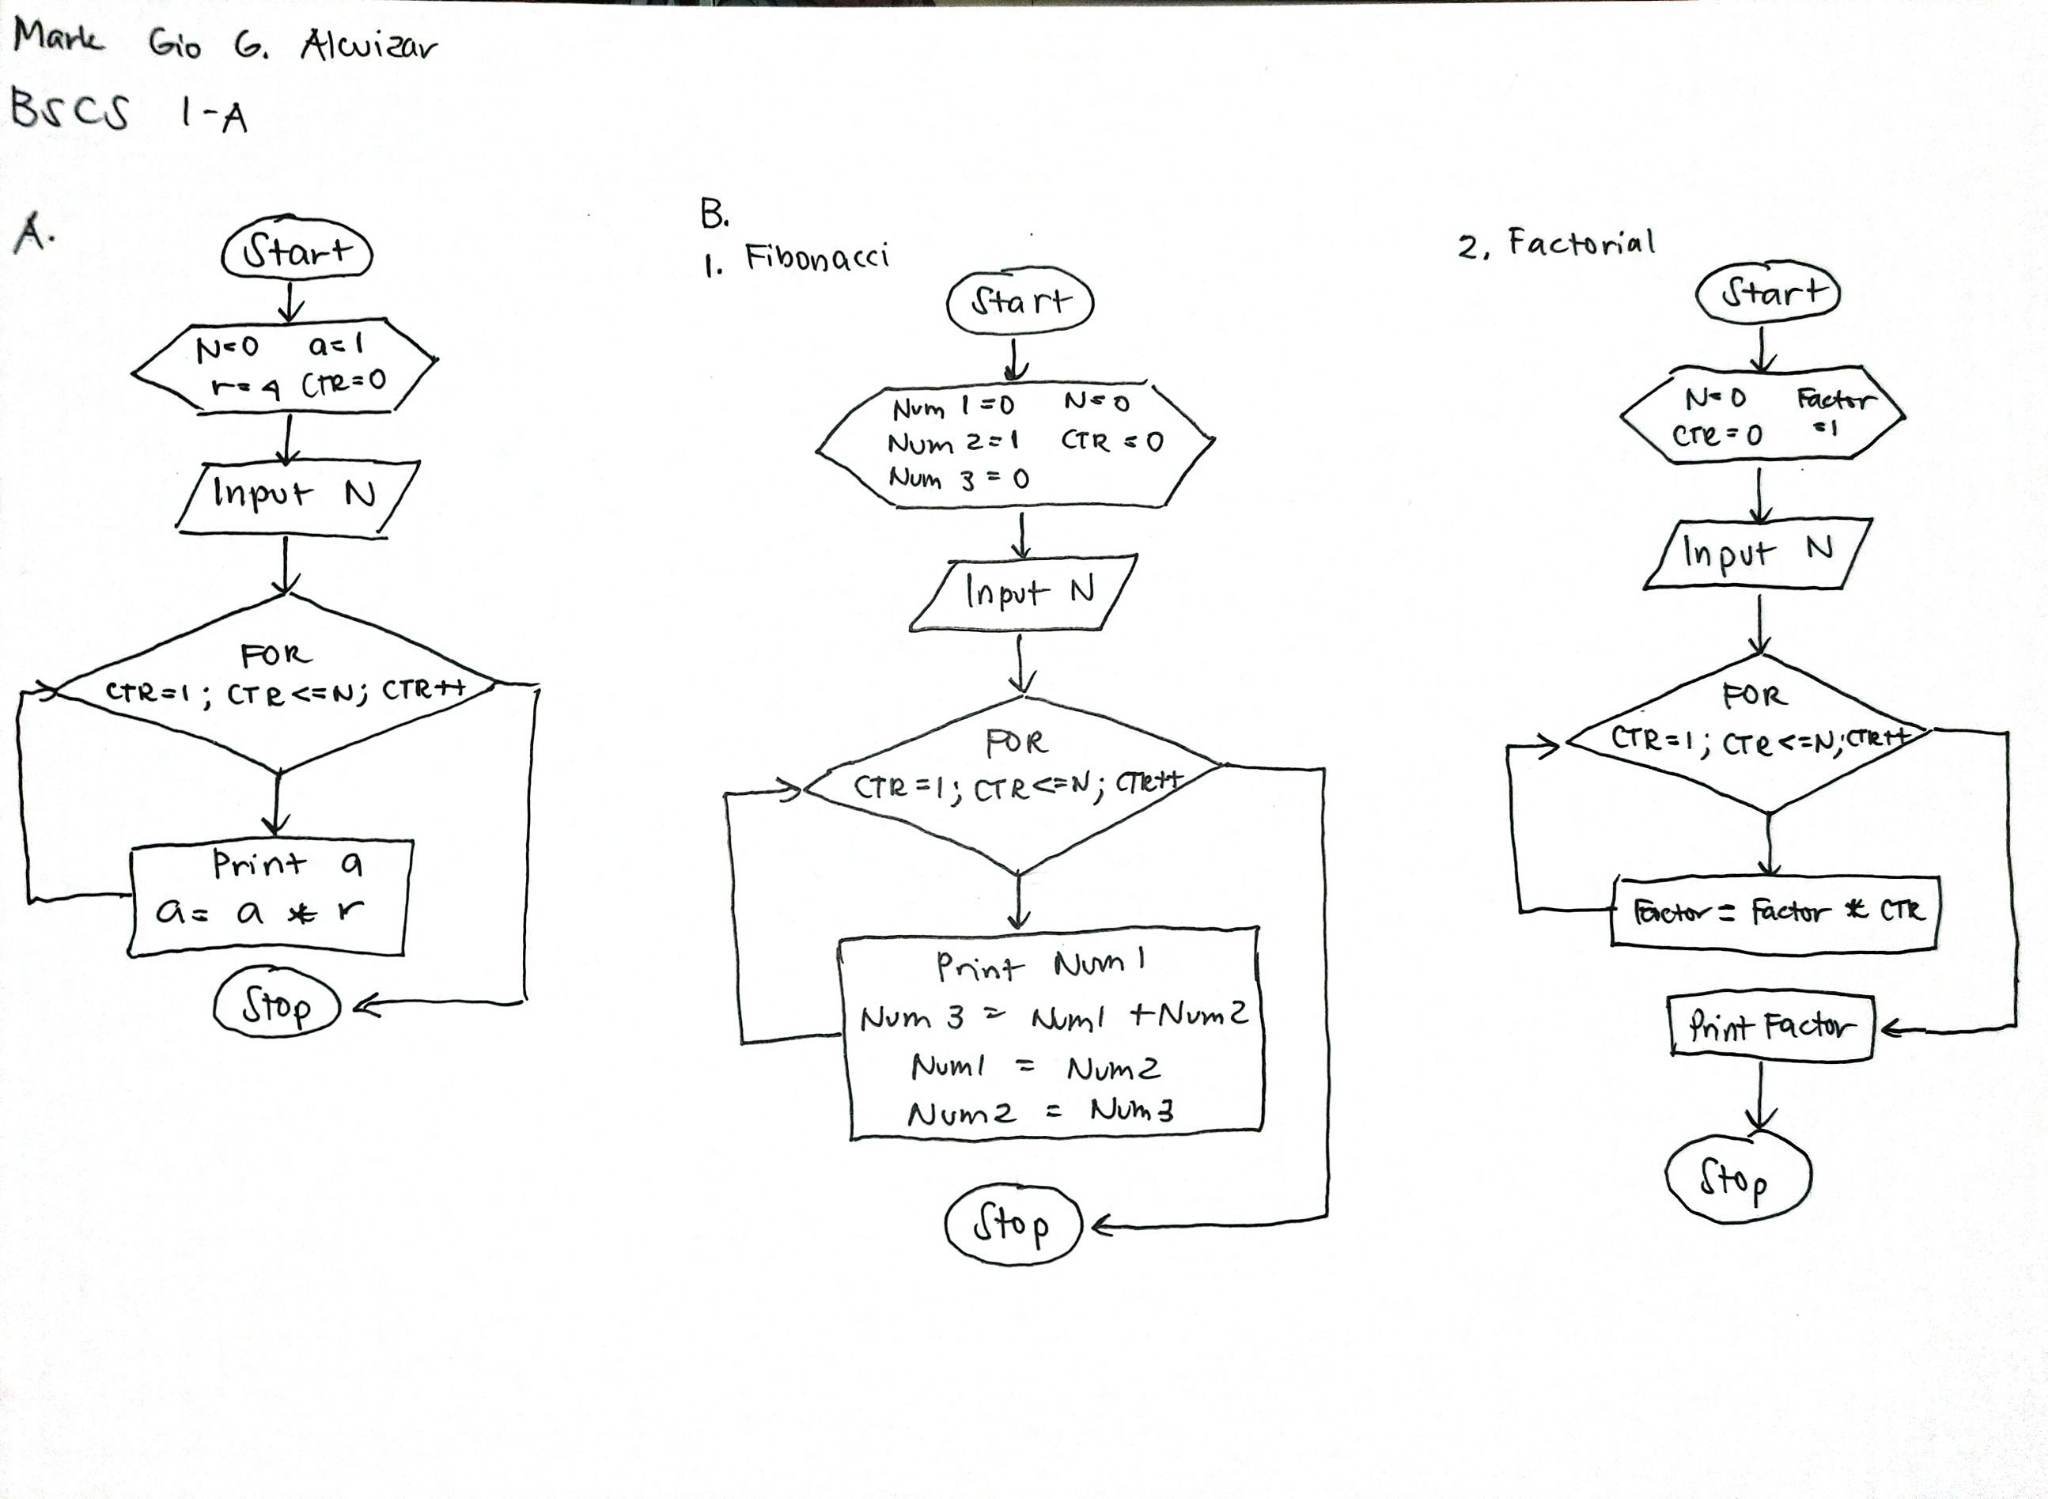 Mark Gio G. Alcuizar
BSCS 1-A
A.
Start
N=0 a=1
r=4 CTR=0
Input N
FOR
CTR=1; CTR<=N; CTR++
Print a
a= a * r
Stop
B.
1. Fibonacci
Start
Num 1=0 N=0
Num 2=1 CTR=0
Num 3=0
Input N
FOR
CTR=1; CTR<=N; CTR++
Print Num1
Num 3 = Num1 +Num2
Num1 = Num2
Num2 = Num3
Stop
2. Factorial
Start
N=0 Factor
CTR=0 =1
Input N
FOR
CTR=1; CTR<=N; CTR++
Factor = Factor * CTR
Print Factor
Stop